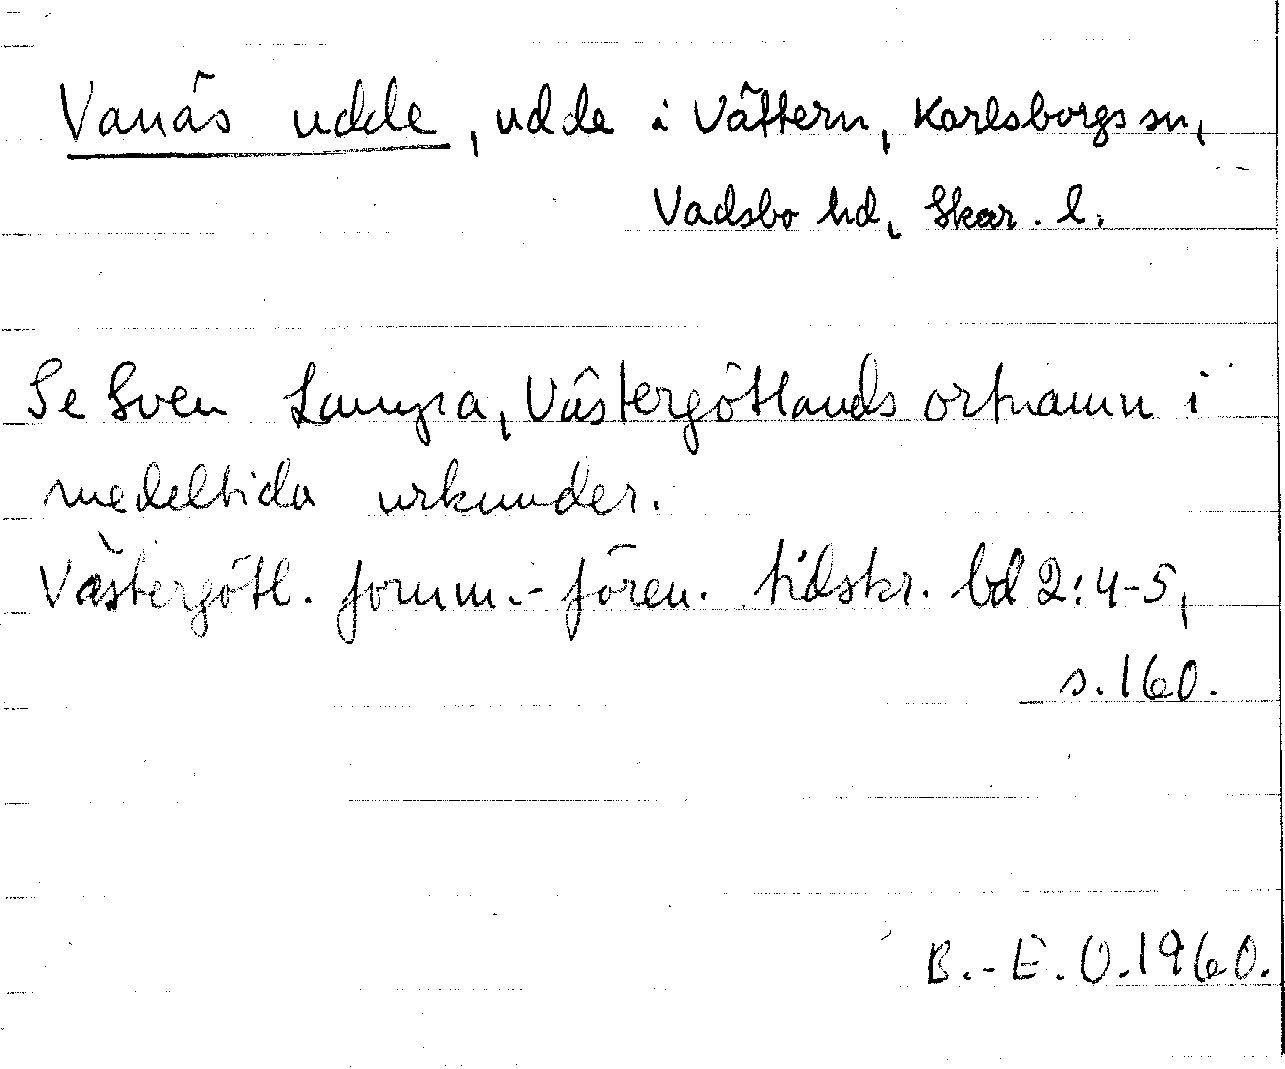 Vanäs udde, udde i Vättern, Karlsborgs sn,
Vadsbo hd, Skar. l.
Se Sven Lampa, Västergötlands ortnamn i
medeltida urkunder.
Västergötl. fornm.-fören. tidskr. bd 2:4-5,
s. 160.
B.-E. O. 1960.